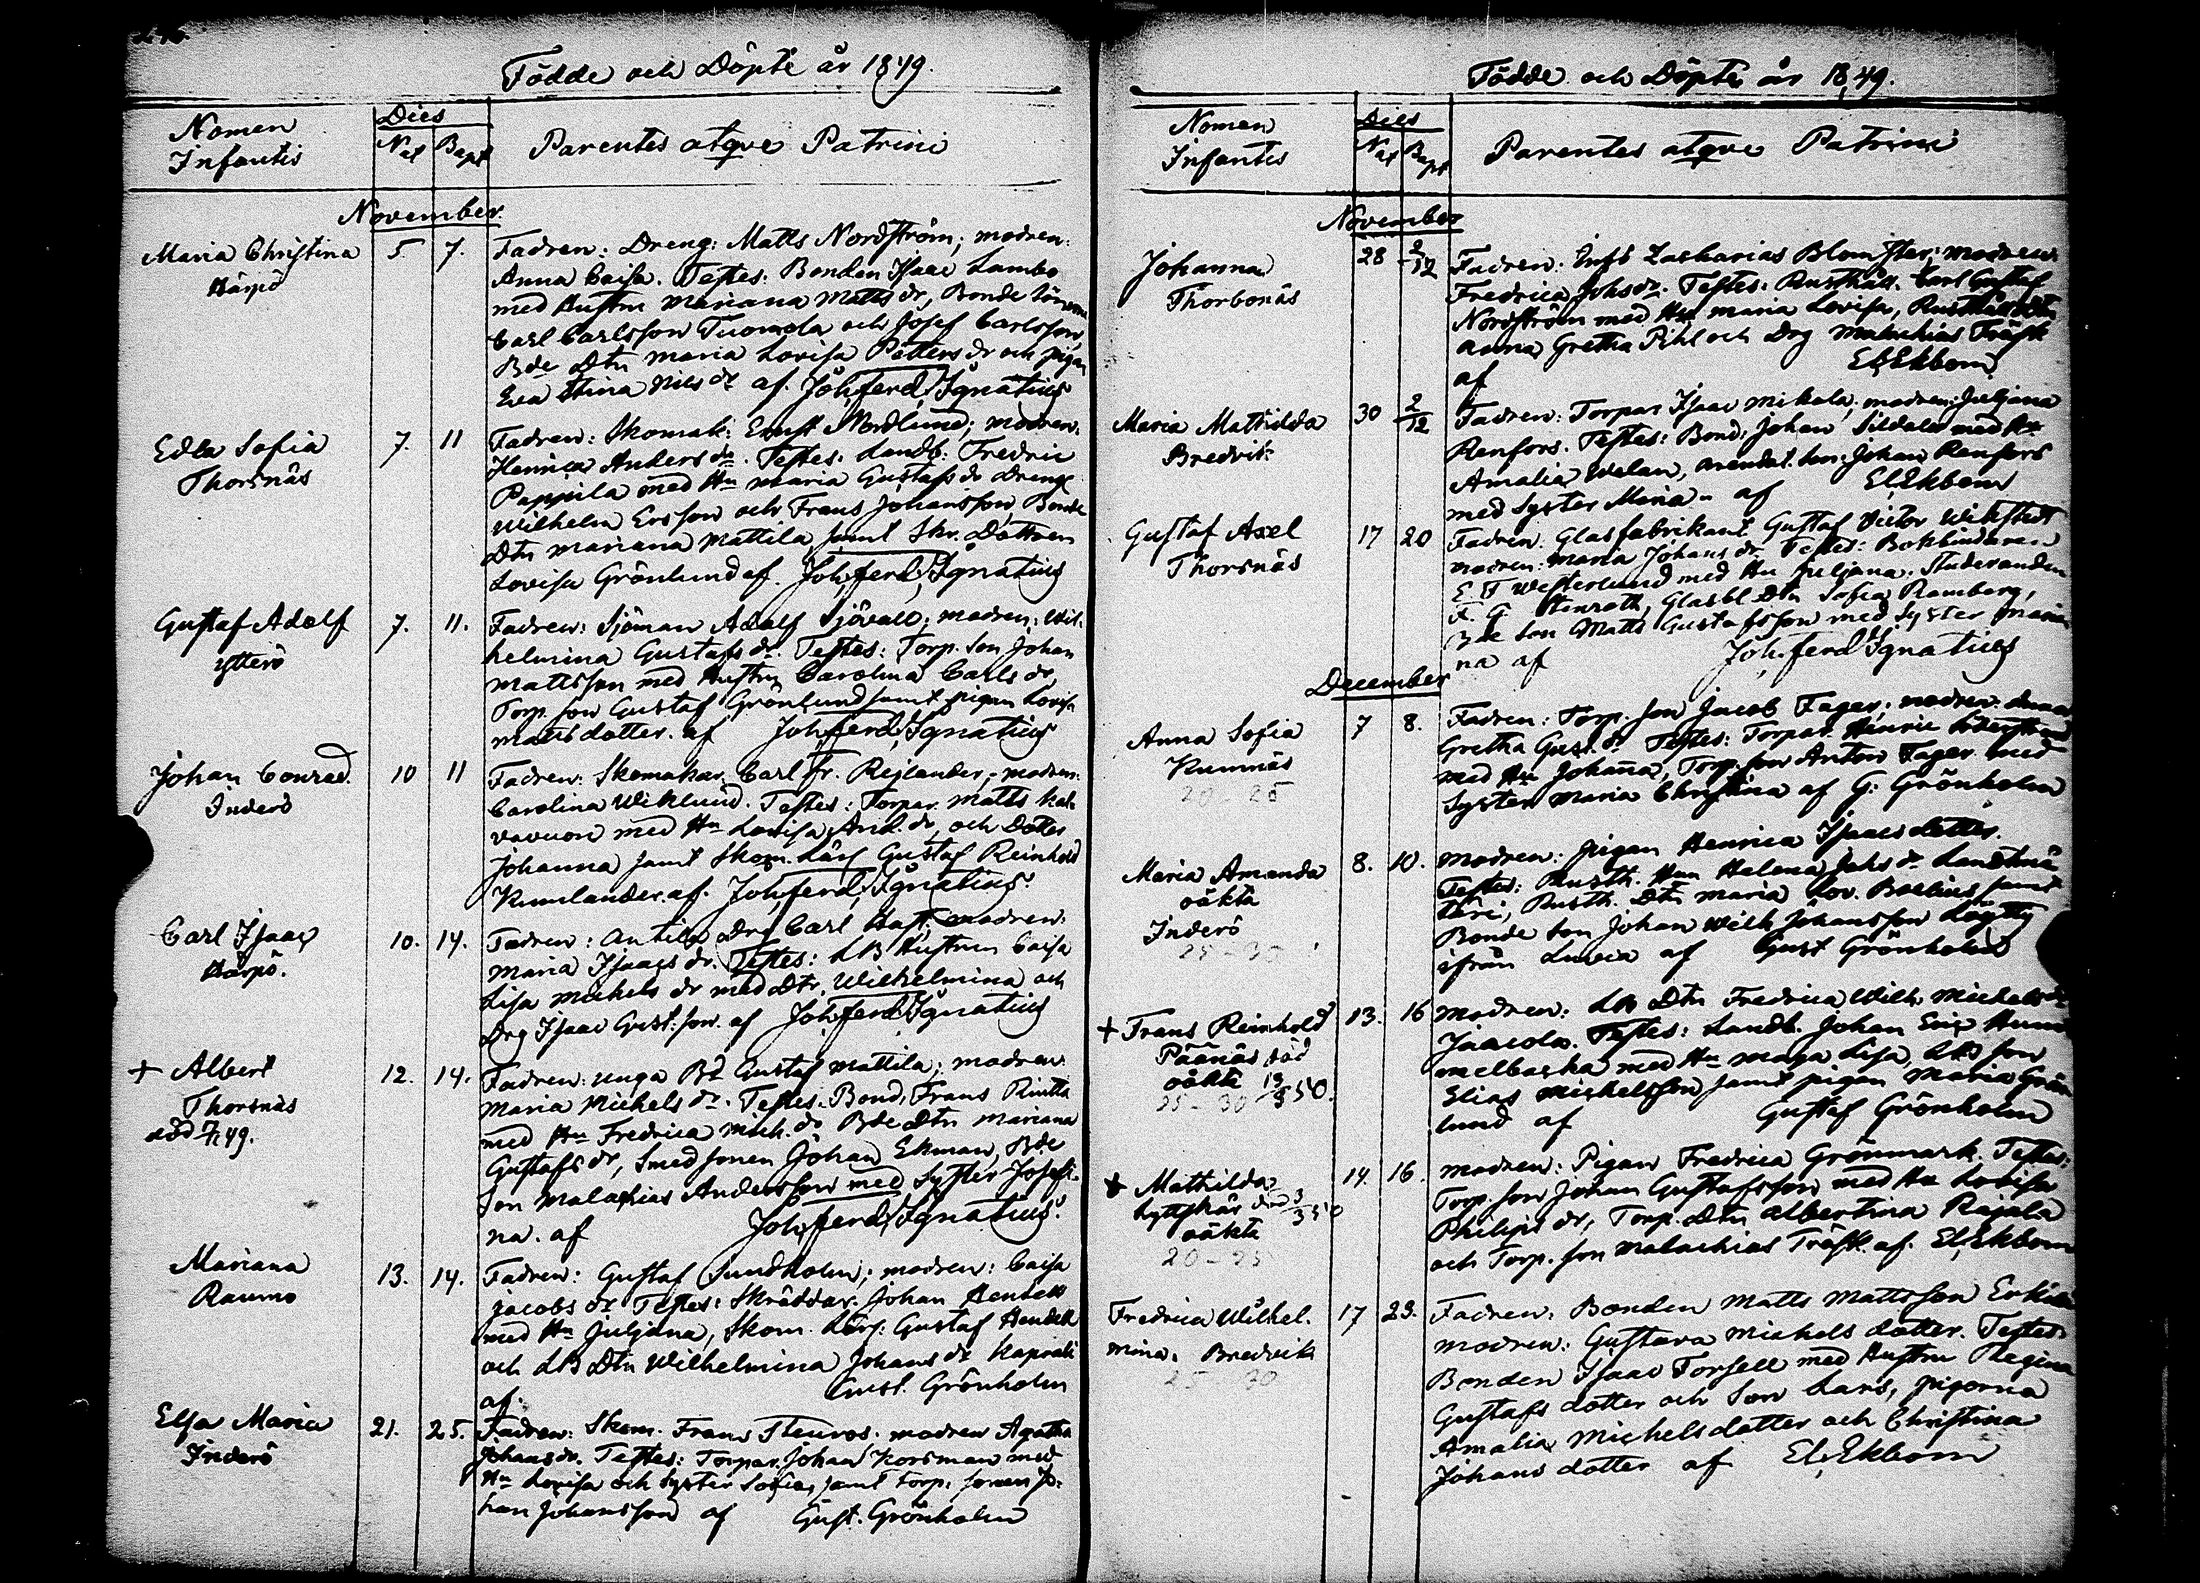 Födde och Döpte år 1849.
Nomen Infantis
Dies
Nat Bapt
Parentes atque Patrini
November.
Maria Christina
Härpö
5. 7.
Fadren: Dreng: Matts Nordström; modren:
Anna Caisa. Testes: Bonden Isaac Lambo
med Hustru Mariana Matts dr, Bonde sönerne
Carl Carlsson Tuomola och Josef Carlsson,
Bde Dtn Maria Lovisa Petters dr och pigan
Eva Stina Nils dr af. Joh. ferd. Ignatius
Edla Sofia
Thorsnäs
7. 11
Fadren: Skomak: Ernst Nordlund; modren:
Henrica Anders dr. Testes. Landb. Fredric
Pappila med Hu Maria Gustafs dr Dreng
Wilhelm Ersson och Frans Johansson, Bonde
Dtn Mariana Mattila samt Skr. Dottren
Lovisa Grönlund af. Joh. ferd. Ignatius
Gustaf Adolf
Ytterö
7. 11.
Fadren: Sjöman Adolf Sjövall; modren: Wil-
helmina Gustafs dr. Testes: Torp. son Johan
Mattsson med Hustru Carolina Carls dr,
Torp. son Gustaf Grönlund samt pigan Lovisa
Mattsdotter. af Joh. ferd. Ignatius
Johan Conrad.
Inderö
10 11
Fadren: Skomakar. Carl fr. Rejlander; modren:
Carolina Wiklund. Testes: Torpar. Matts Kal-
vavuori med Hu Lovisa And. dr, och Dotter
Johanna samt Skom. Lärl Gustaf Reinhold
Kumlander. af. Joh. ferd. Ignatius.
Carl Isaac
Härpö.
10. 14.
Fadren: Antila Drg Carl Haft; modren:
Maria Isaacs dr. Testes: LB Hustrun Caisa
Lisa Michels dr med Dtr. Wilhelmina och
Drg Isaac Gust: son. af Joh. ferd. Ignatius
+ Albert
Thorsnäs
död 49.
12. 14.
Fadren: unga Bd Gustaf Mattila; modren
Maria Michels dr. Testes. Bond. Frans Rintta
med Hu Fredrica Mich. dr Bde Dtn Mariana
Gustafs dr, Smed sonen Johan Ekman, Bde
Son Malachias Andersson med Syster Josefi-
na. af Joh. ferd. Ignatius.
Mariana
Raumo
13. 14.
Fadren: Gustaf Sundholm; modren: Caisa
Jacobs dr Testes: Skräddar. Johan Hendell
med Hu Juljana, Skom. Lärl: Gustaf Hendell
och LB Dtn Wilhelmina Johans dr Kaprali
af. Gust. Grönholm
Elsa Maria
Inderö
21. 25.
Fadren: Skom. Frans Fleuros. modren Agatha
Johansdr. Testes: Torpar. Johan Korsman med
Hu Lovisa och Syster Sofia, samt Torp. sonen Jo-
han Johansson af Gust. Grönholm
Födde och Döpte år 1849.
Nomen Infantis
Dies
Nat Bapt
Parentes atque Patrini
November
Johanna
Thorbonäs
28 2/12
Fadren: Inhs Zacharias Blomster; modren
Fredrica Johs dr. Testes: Rusthåll. Carl Gustaf
Nordström med Hu Maria Lovisa, Rusthåll Dtn
Anna Gretha Pihl och Drg Malachias Träsk
af El. Ekbom
Maria Mathilda
Bredvik
30 2/12
Fadren: Torpar Isaac Mikola; modren: Juljana
Renfors. Testes: Bond: Johan Sildala med Hu
Amalia Welan, Arendat. son: Johan Renfors
med Syster Maria. af El. Ekbom
Gustaf Axel
Thorsnäs
17 20
Fadren: Glasfabrikant Gustaf Victor Wikstedt
modren: Maria Johans dr Testes: Bokbindaren
E. F Westerlund med Hu Juljana. Studeranden
F. G. Stenroth, Glasbl. Dtn Sofia Ramberg,
Bde son Matts Gustafsson med Syster Maria-
na af Joh. ferd Ignatius
December
Anna Sofia
Kumnäs
20-25
7 8.
Fadren: Torp. son Jacob Fager; modren: Anna
Gretha Gust. dr Testes: Torpar. Henric
med Hu Johanna, Torp. son Anton Fager med
Syster Maria Christina af G: Grönholm
Maria Amanda
oäkta
Inderö
25-30
8. 10.
Modren: pigan Henrica Isaacs dotter.
Testes: Rusth. Hun Helena Johs dr
Rusth. Dtn Maria Lov. Boelius samt
Bonde son Johan Wilh Johansson
ifrån Luvia af Gust Grönholm
+ Frans Reinhold
Päänäs död
oäkta 13/3 50.
25-30
13. 16
Modren: LB Dtn Fredrica Wilh. Michels dr
Jaacola. Testes: Landb. Johan Eric Hum-
melbacka med Hu Maja Lisa, LB son
Elias Michelsson samt pigan Maria Grön-
lund af Gustaf Grönholm
+ Mathilda
Lyttskär död 3/3 50
oäkta
20-25
14. 16.
Modren: Pigan Fredrica Grönmark. Testes:
Torp. son Johan Gustafsson med Hu Lovisa
Philips dr, Torp. Dtn Albertina Rajala
och Torp. son Malachias Träsk. af. El. Ekbom
Fredrica Wilhel-
mina. Bredvik
25-30
17 23.
Fadren: Bonden Matts Mattsson Erkilä
modren: Gustava Michels dotter. Testes:
Bonden Isaac Forsell med Hustru Regina
Gustafs dotter och Son Lars, pigorna
Amalia Michelsdotter och Christina
Johans dotter af El. Ekbom